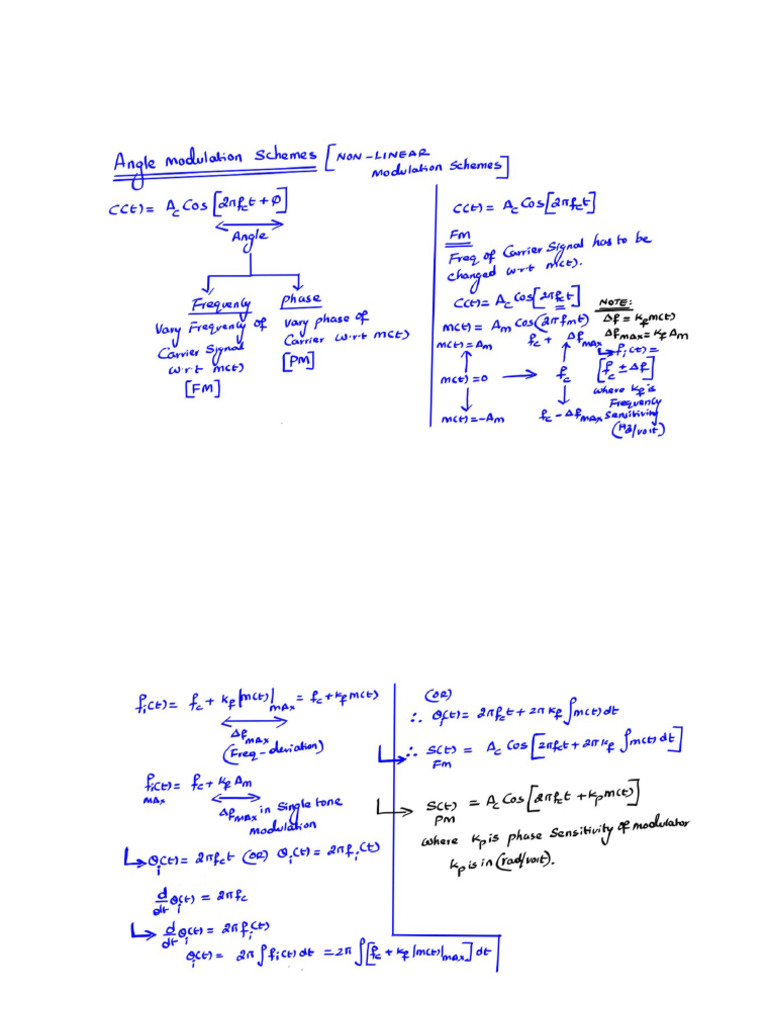 Angle Modulation Schemes [NON-LINEAR
Modulation Schemes]
C(t) = A_c Cos[2πf_c t + Ø]
Angle
Frequency
Vary Frequency of
Carrier Signal
w.r.t m(t)
[FM]
Phase
Vary phase of
Carrier w.r.t m(t)
[PM]
C(t) = A_c Cos[2πf_c t]
FM
Freq of Carrier Signal has to be
changed w.r.t m(t).
C(t) = A_c Cos[2πf_c t]
m(t) = A_m Cos(2πf_m t)
m(t) = A_m f_c + Δf_max
m(t) = 0 → f_c
m(t) = -A_m f_c - Δf_max
NOTE:
Δf = K_f m(t)
Δf_max = K_f A_m
↳ f_i(t) =
[f_c ± Δf]
where K_f is
Frequency
Sensitivity
(Hz/volt)
f_i(t) = f_c + K_f |m(t)|_max = f_c + K_f m(t)
Δf_max
(Freq-deviation)
f_i(t)_max = f_c + K_f A_m
Δf_max in Single tone
modulation
↳ θ_i(t) = 2πf_c t (OR) θ_i(t) = 2πf_i(t)
d/dt θ_i(t) = 2πf_c
↳ d/dt θ_i(t) = 2πf_i(t)
θ_i(t) = 2π ∫ f_i(t) dt = 2π ∫ [f_c + K_f |m(t)|_max] dt
(OR)
∴ θ_i(t) = 2πf_c t + 2πK_f ∫ m(t) dt
∴ S(t)_FM = A_c Cos[2πf_c t + 2πK_f ∫ m(t) dt]
S(t)_PM = A_c Cos[2πf_c t + K_p m(t)]
where K_p is phase Sensitivity of modulator
K_p is in (rad/volt).